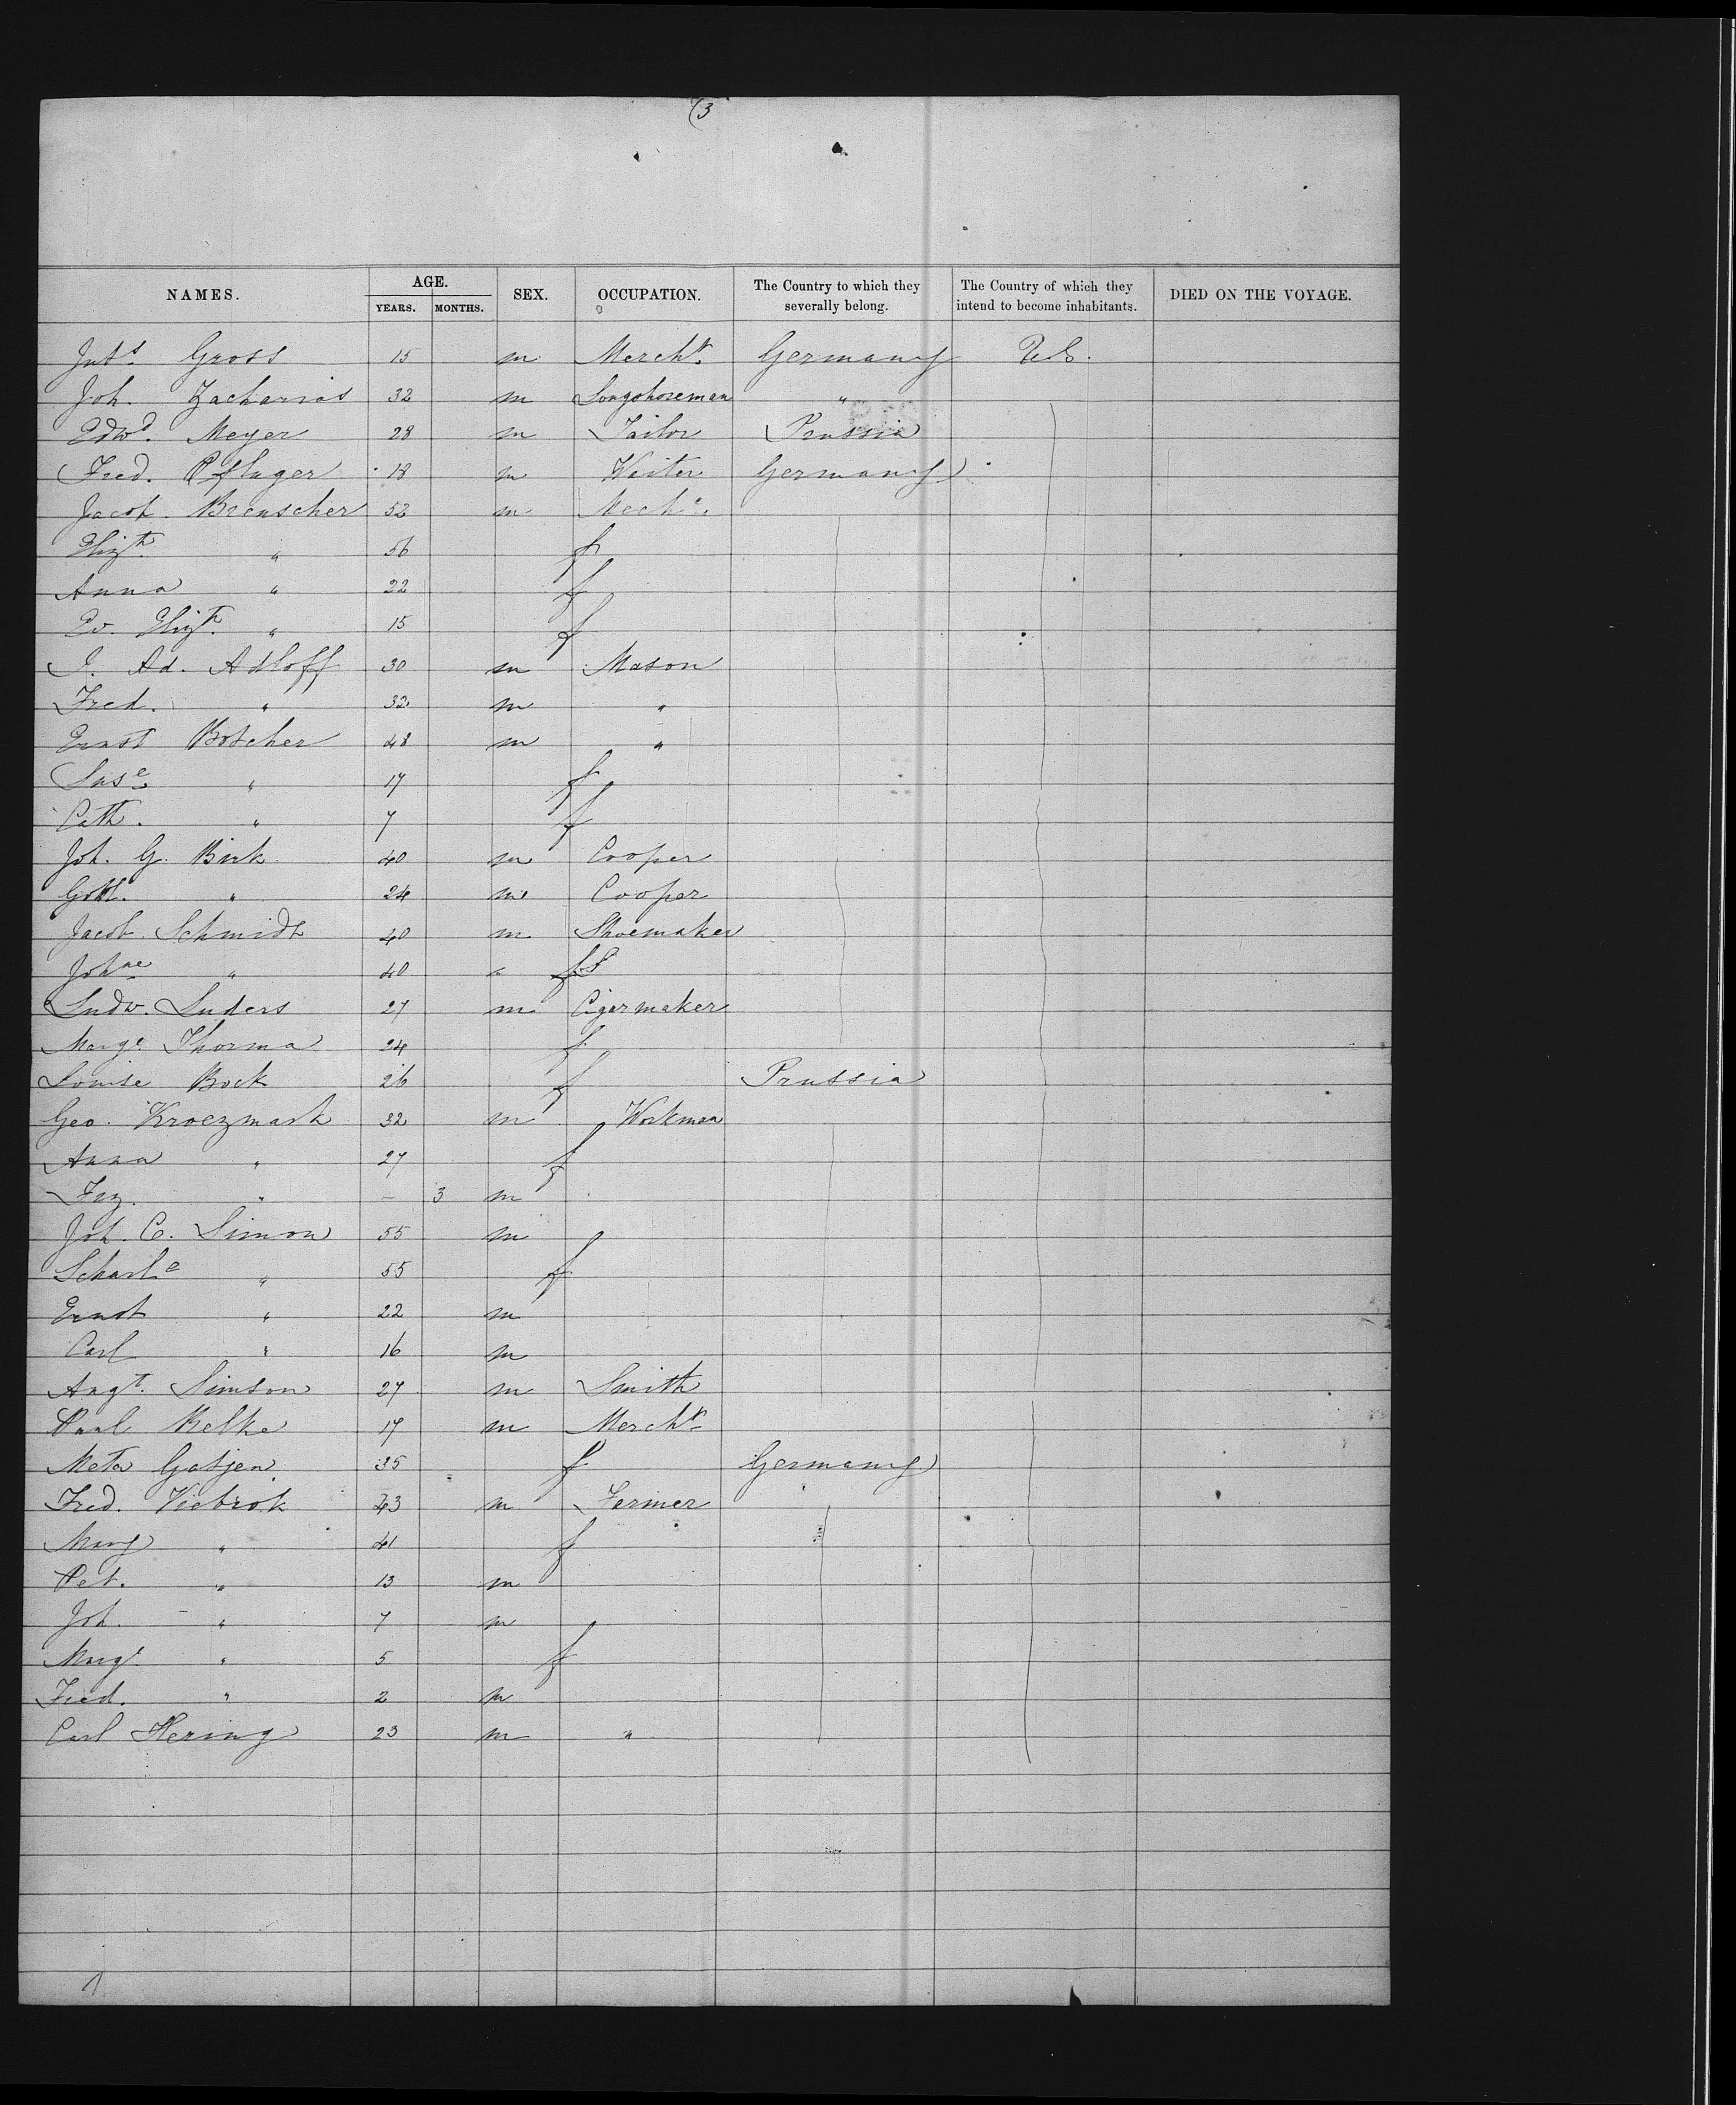 (3
NAMES. AGE. YEARS. MONTHS. SEX. OCCUPATION. The Country to which they severally belong. The Country of which they intend to become inhabitants. DIED ON THE VOYAGE.
Gross 15 m Mercht Germany U.S.
Joh. Zacharias 32 m Longshoreman "
Edwd. Meyer 28 m Tailor Prussia
Fred. Pfluger 18 m Waiter Germany
Jacob Brenscher 52 m Mechc.
Elizth " 56 f
Anna " 22 f
Ev. Elizth. " 15 f
J. Ad. Adloff 30 m Mason
Fred. " 32 m "
Ernst Botcher 48 m "
" 17 f
Cath. " 7 f
Joh. G. Birk 40 m Cooper
Gottl. " 24 m Cooper
Jacob Schmidt 40 m Shoemaker
Johne " 40 " f
Ludw. Luders 27 m Cigarmaker
Marge. Thorma 24 f
Louise Bock 26 f Prussia
Geo. Kroezmark 32 m Workman
Anna " 27 f
" — 3 m
Joh. C. Simon 55 m
Scharle " 55 f
Ernst " 22 m
Carl " 16 m
Augt. Simson 27 m Smith
Paul Kelke 17 m Mercht
Meta Gatjen 35 f Germany
Fred. Viebrok 43 m Fermer
" 41 f
Pet. " 13 m
Joh. " 7 m
" 5 f
Fred. " 2 m
Carl Hering 23 m "